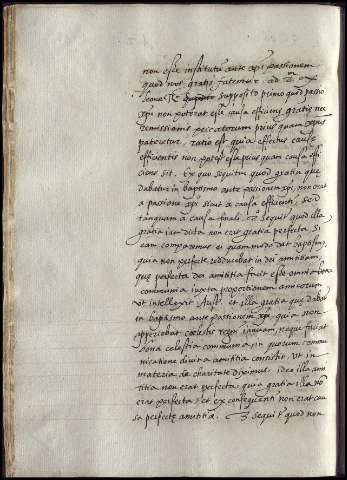 non esse institutũ ante xpi passionem
quod nos gratis fatemur. ad 2m ex
supposito primo quod passio
xpi non poterat esse causa efficiens gratiæ nec
remissionis peccatorum prius quam xpus
pateretur. ratio est quia effectus causæ
efficientis non potest esse prius quam causa effi
ciens sit. Ex quo sequitur quod gratia quæ
dabatur in baptismo ante passionem xpi, non erat
a passione xpi sicut a causa efficienti, sed
tanquam a causa finali. 2o sequitur quod illa
gratia iam dicta non erat gratia perfecta si
eam comparemus ei quam modo dat baptismus,
quia non perfecte reducebat in dei amicitiam,
quæ perfecta dei amicitia facit esse omnia bona
communia iuxta proportionem amicorum
ut intellexit Arist. et illa gratia quæ dabatur
in baptismo ante passionem xpi, quia non
aperiebat cœlestis regni ianuam, neque faciebat
bona celestia communia in quorum commu
nicatione divina amicitia consistit ut in
materia de charitate diximus. ideo illa ami
titia non erat perfecta quia gratia illa nõ
erat perfecta et ex consequenti non erat cau
sa perfectæ amicitiæ. 3o sequitur quod non